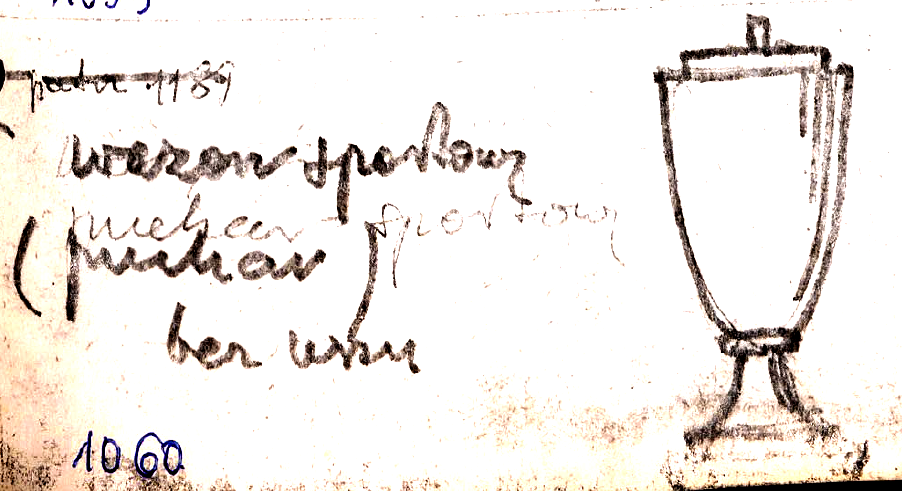 1189
wazon sportowy
puchar sportowy
(puchar)
bez uszu
1060